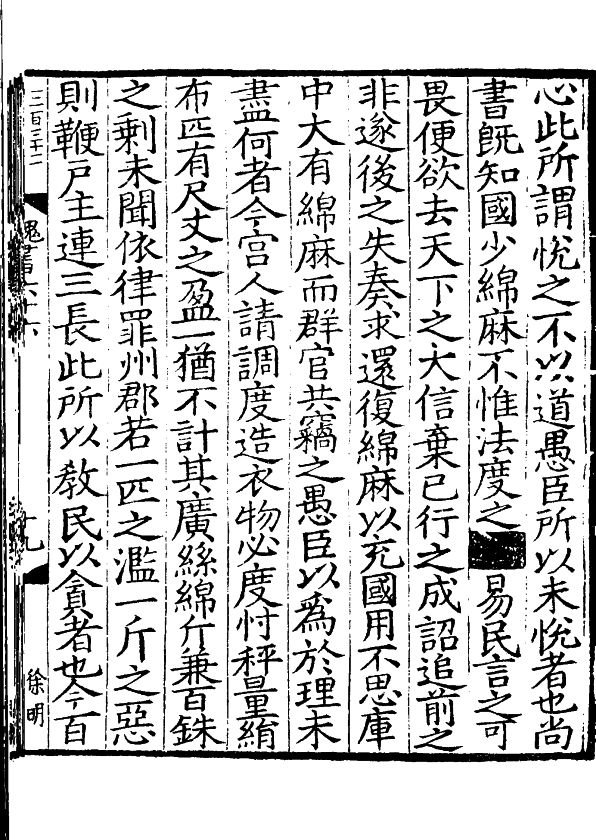 心此所謂悅之不以道愚臣所以未悅者也尚
書旣知國少綿麻不惟法度之易民言之可
畏便欲去天下之大信棄已行之成詔追前之
非遂後之失奏求還復綿麻以充國用不思庫
中大有綿麻而群官共竊之愚臣以爲於理未
盡何者今宫人請調度造衣物必度忖秤量絹
布匹有尺丈之盈一猶不計其廣絲綿斤兼百銖
之剩未聞依律罪州郡若一匹之濫一斤之惡
則鞭戸主連三長此所以敎民以貪者也今百
三百三十二
魏書六十六
十九
徐明